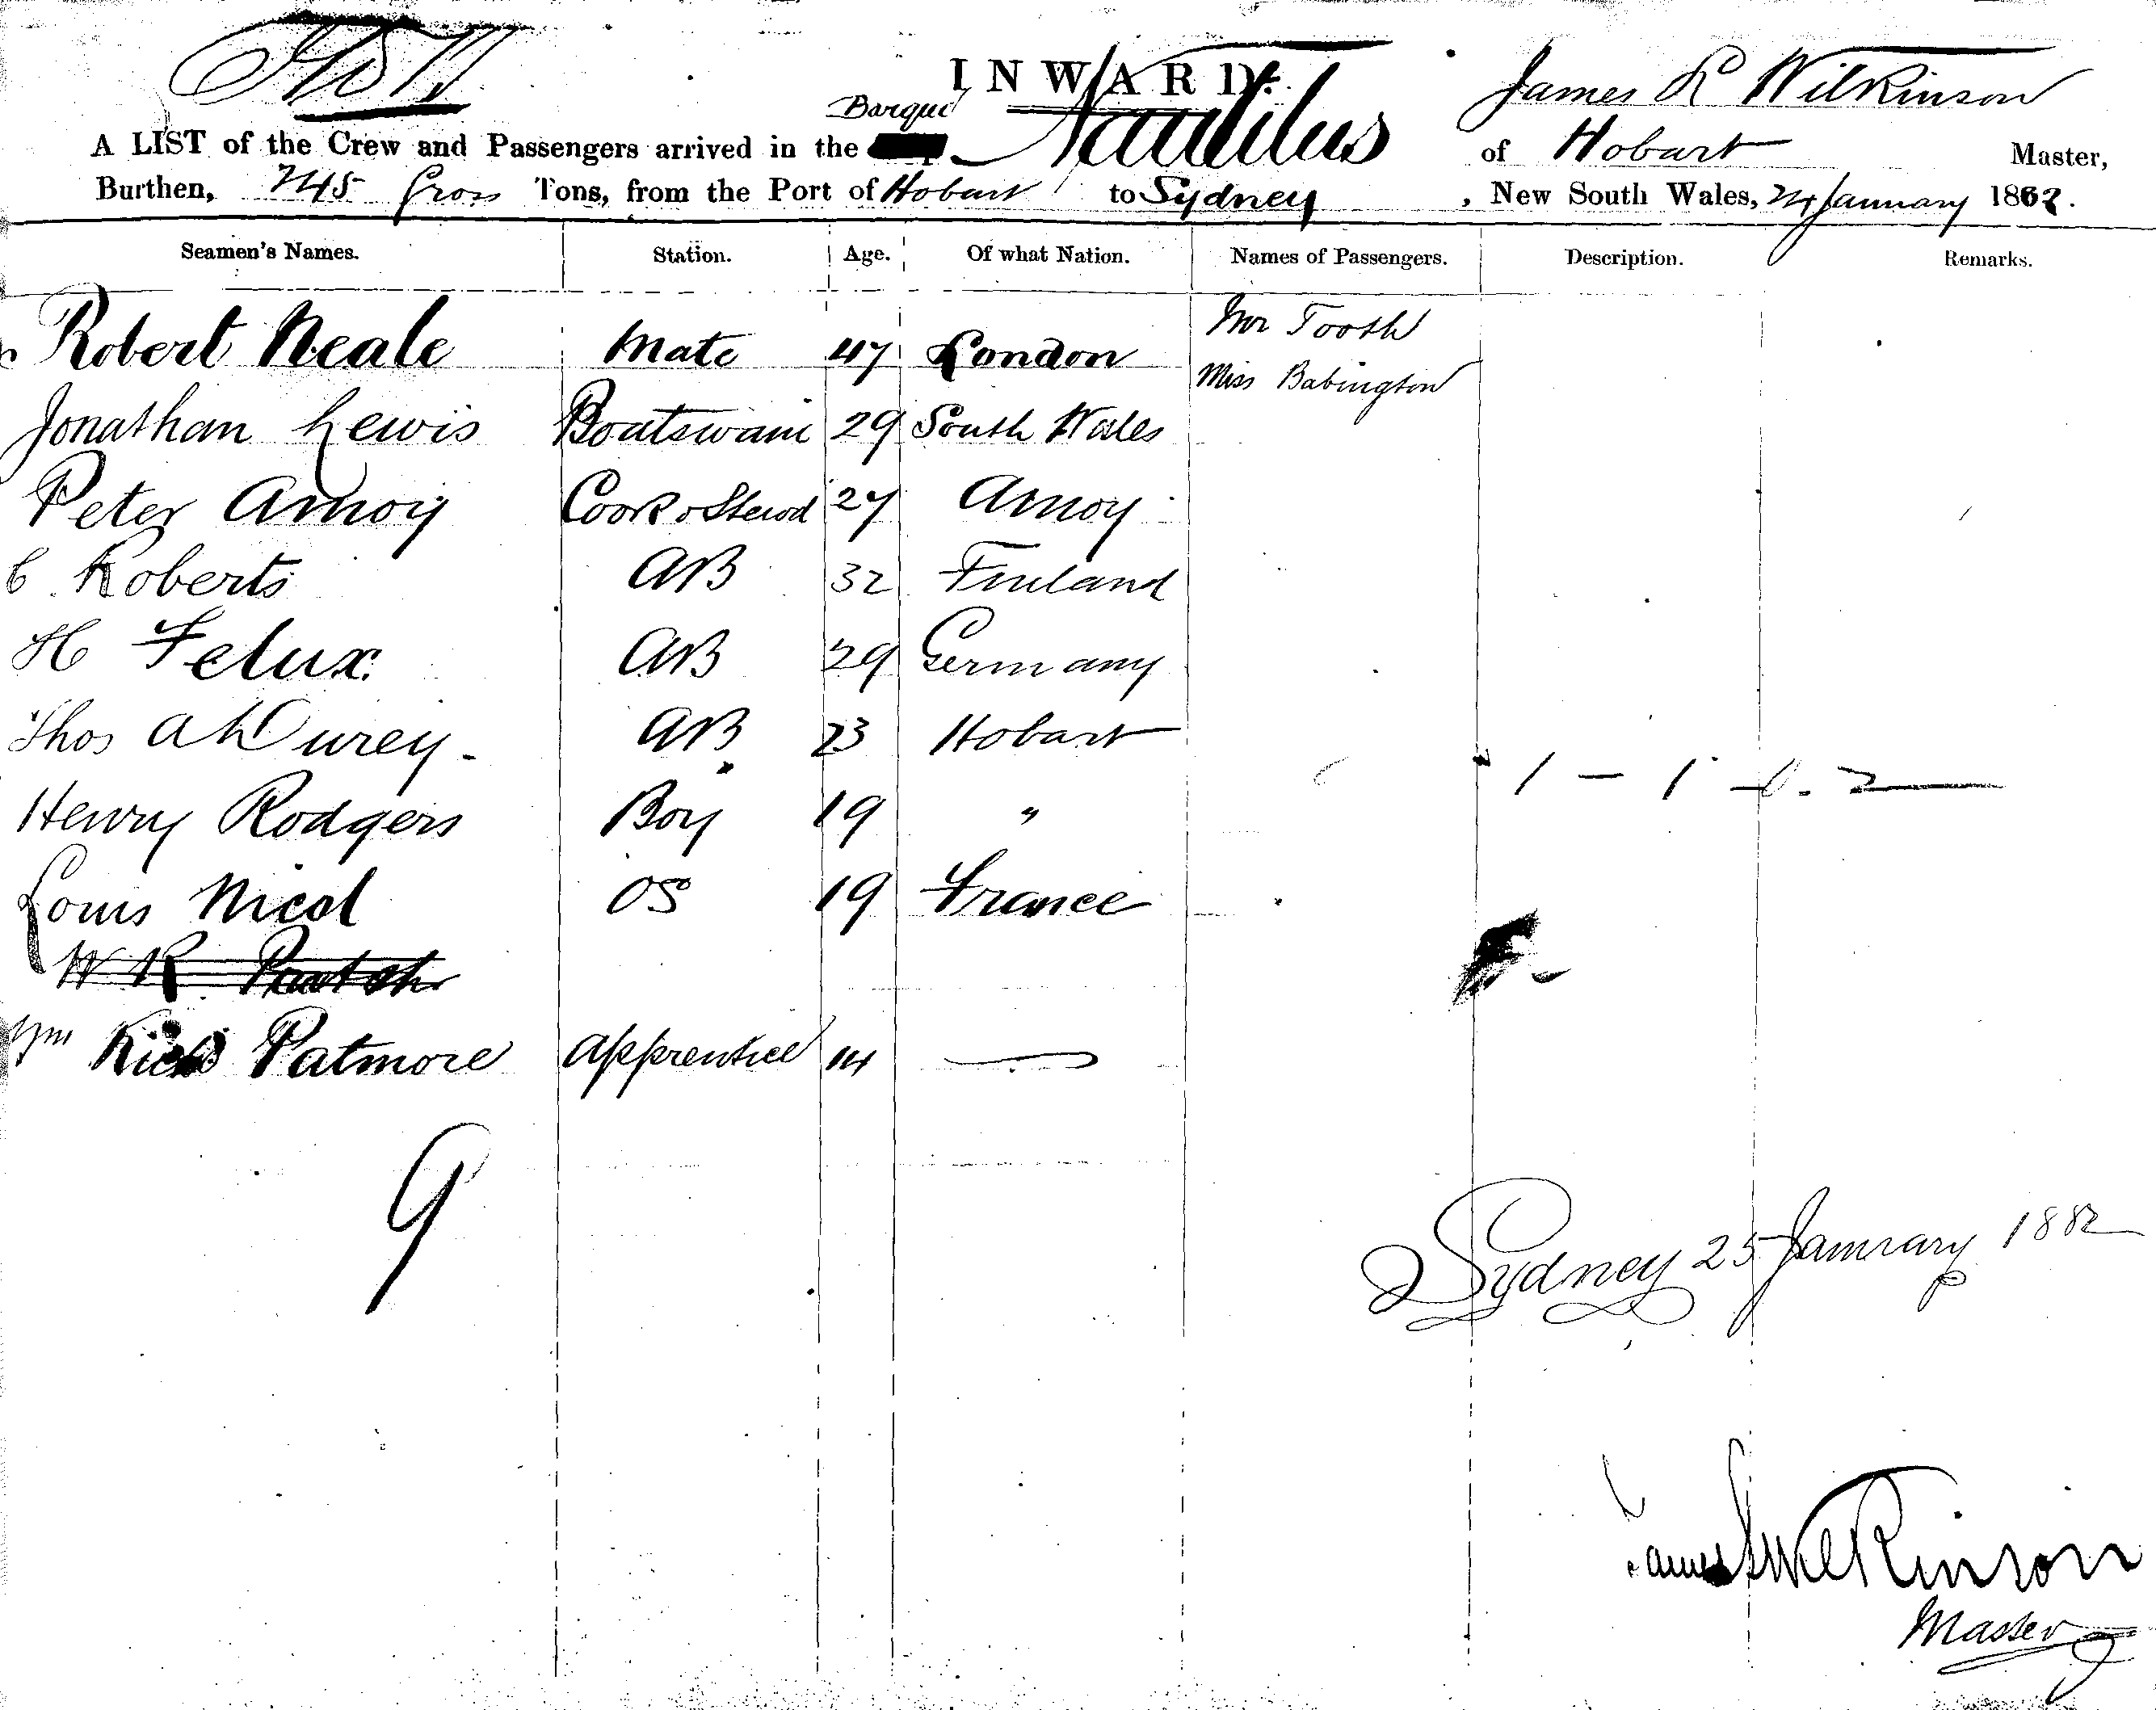 INWARD.
Barque
James R Wilkinson
A LIST of the Crew and Passengers arrived in the Nautilus of Hobart Master,
Burthen, 245 Gross Tons, from the Port of Hobart to Sydney, New South Wales, 24 January 1882.
Seamen's Names. Station. Age. Of what Nation. Names of Passengers. Description. Remarks.
Robert Neale Mate 47 London Mr Tooth
Miss Babington
Jonathan Lewis Boatswain 29 South Wales
Peter Amoy Cook & Stewd 27 Amoy
C Roberts AB 32 Finland
H Felux AB 29 Germany
Thos Durey AB 23 Hobart
1 - 1 - 2
Henry Rodgers Boy 19 "
Louis Nicol OS 19 France
W R
Wm Patmore Apprentice 14 —
9
Sydney 25 January 1882
James Wilkinson
Master